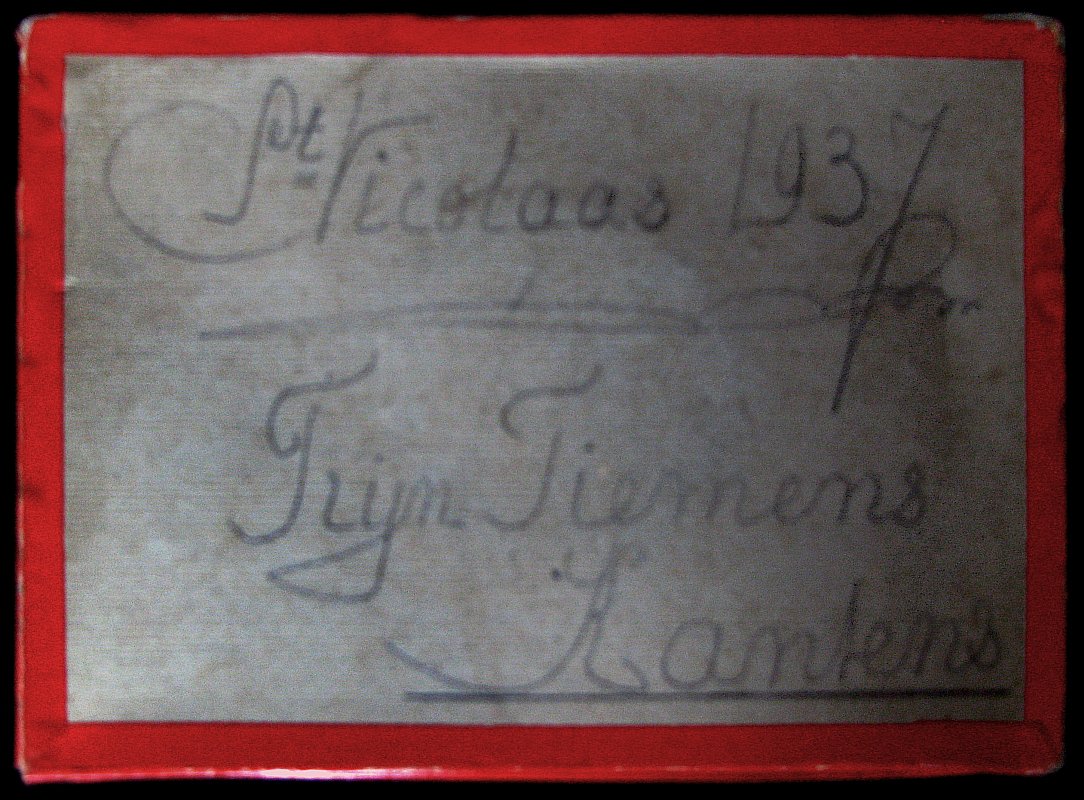 St Nicolaas 1937
Trijn Tiemens
Kantens